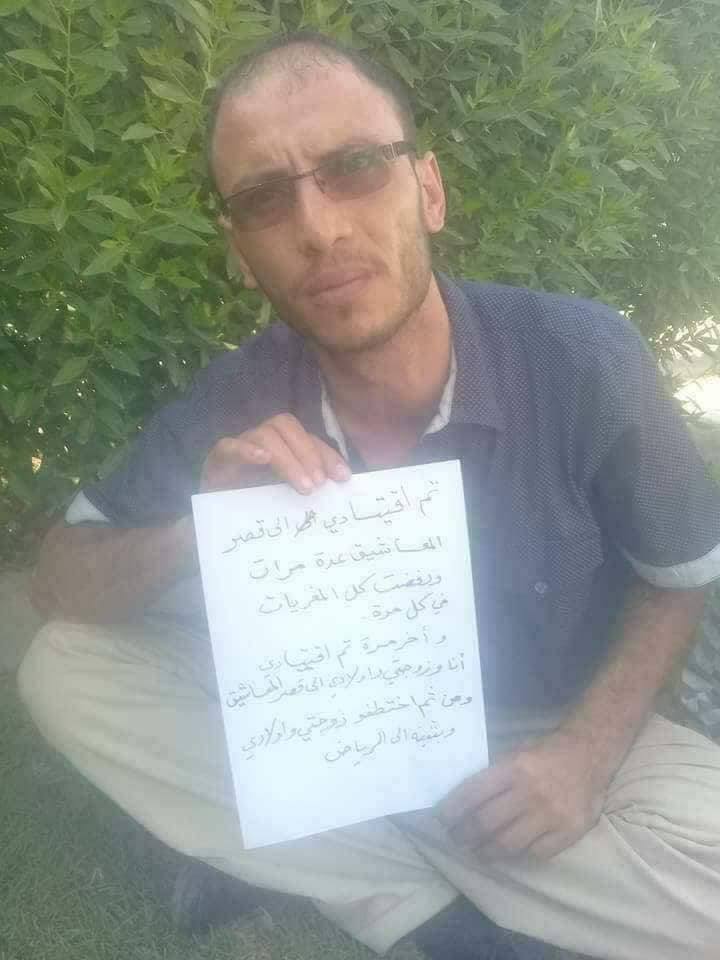 تم اقيتادي الى قصر
المعاشيق عدة مرات
ورفضت كل المغريات
في كل مرة
و أخر مرة تم اقتيادي
أنا وزوجتي واولادي الى قصر المعاشيق
ومن ثم اختطفو زوجتي واولادي
الى الرياض